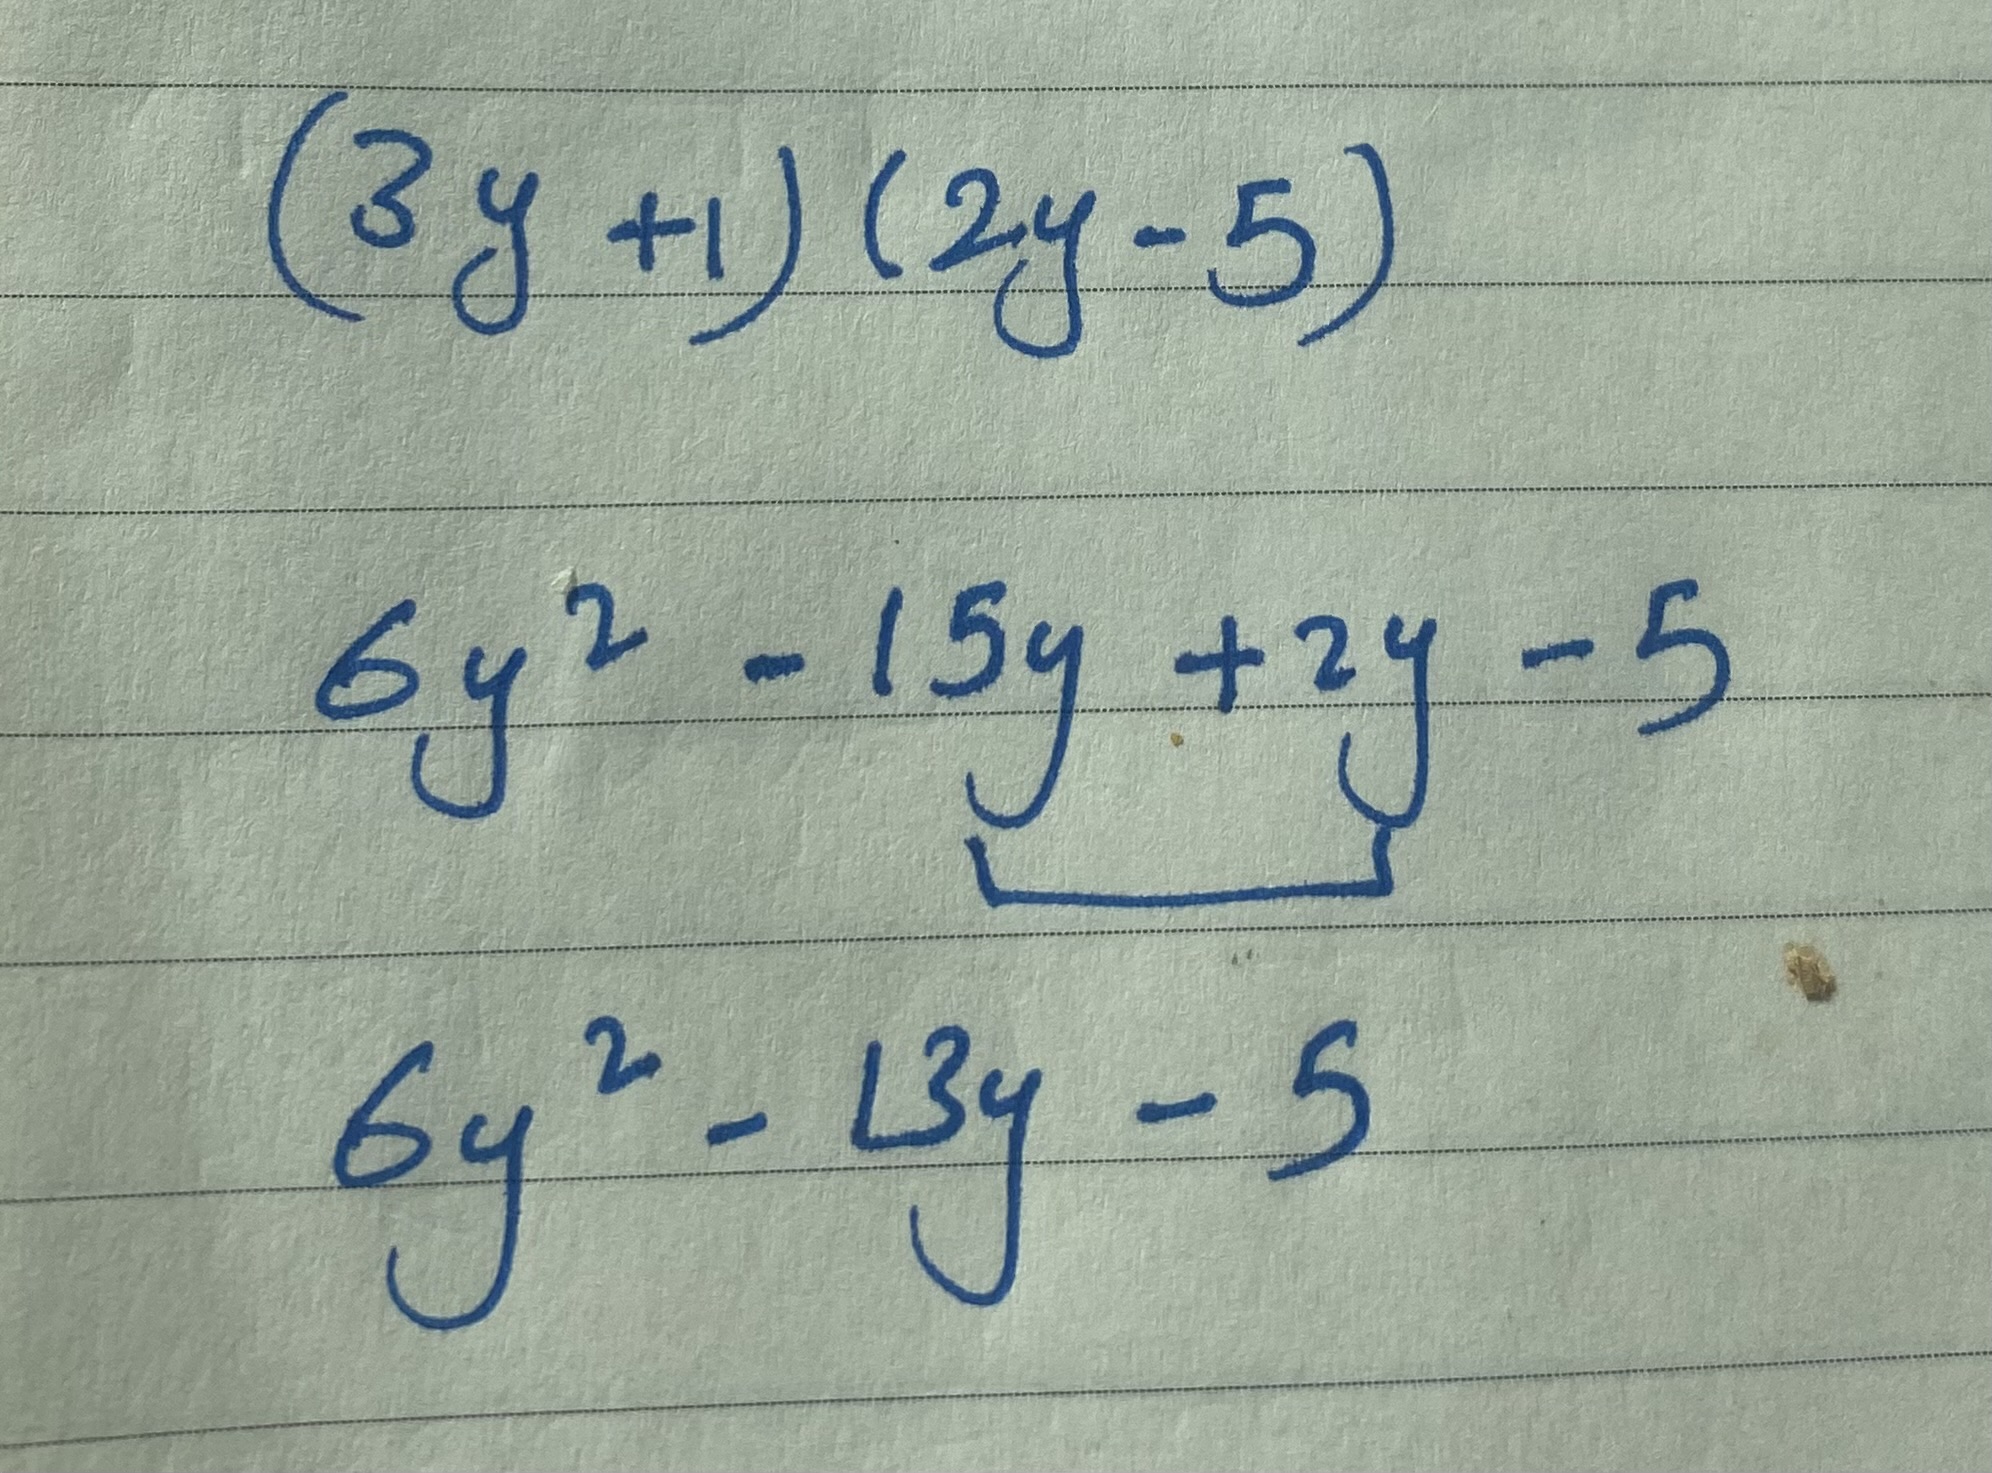 (3y+1)(2y-5)
6y² - 15y + 2y - 5
6y² - 13y - 5